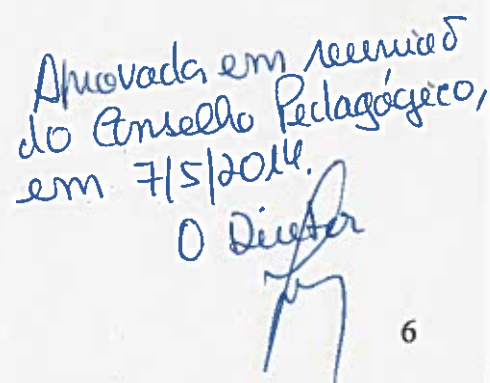 Aprovada em reunião
do Conselho Pedagógico,
em 7/5/2014.
O Diretor
6